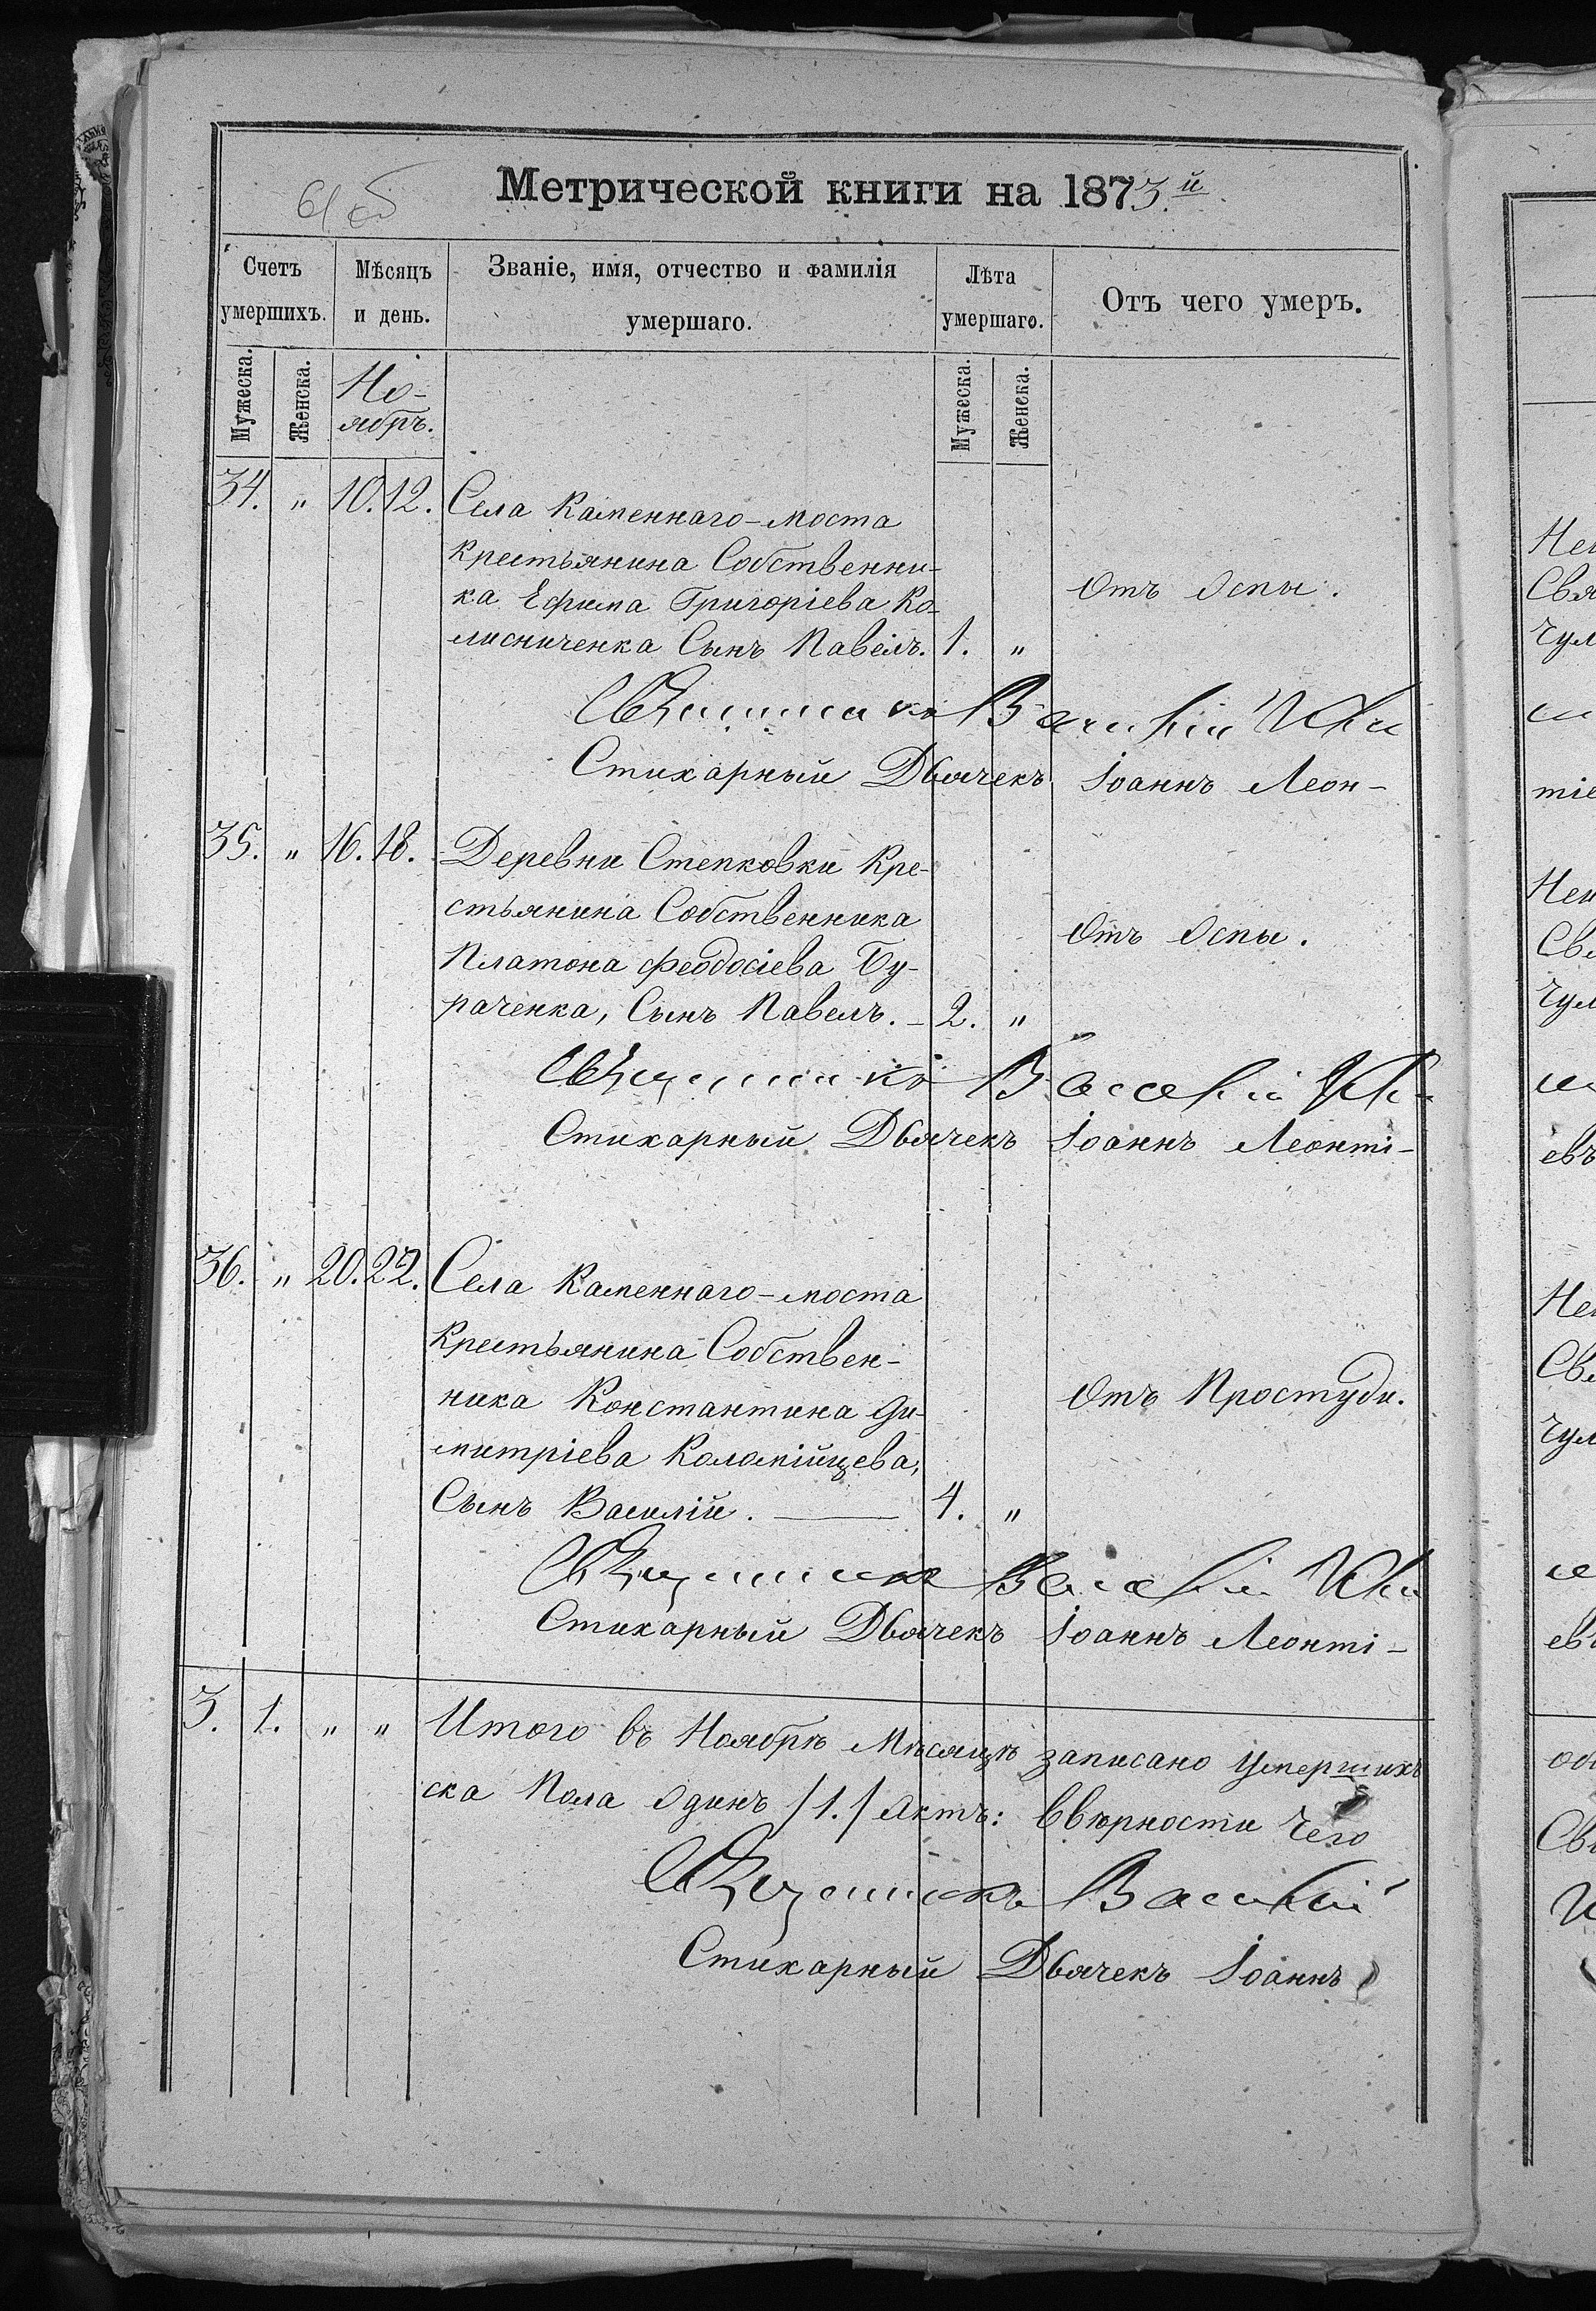 61 об
Метрической книги на 1873.й
Счетъ умершихъ.
Мѣсяцъ и день.
Званіе, имя, отчество и фамилія умершаго.
Лѣта умершаго.
Отъ чего умеръ.
Мужеска.
Женска.
Но-
ябрь.
Мужеска.
Женска.
34. " 10. 12. Села Каменнаго-моста
Крестьянина Собственни-
ка Ефима Григоріева Ко- Отъ Оспы.
лисниченка Сынъ Павелъ. 1. "
Священникъ Василій
Стихарный Дьячекъ Іоаннъ Леон-
35. " 16. 18. Деревни Степковки Кре-
стьянина Собственника Отъ Оспы.
Платона Феодосіева Бу-
раченка, Сынъ Павелъ. - 2. "
Священникъ Василій
Стихарный Дьячекъ Іоаннъ Леонті-
36. " 20. 22. Села Каменнаго-моста
Крестьянина Собствен-
ника Константина Ди- Отъ Простуди.
митріева Коломійцева,
Сынъ Василій. — 4. "
Священникъ Василій
Стихарный Дьячекъ Іоаннъ Леонті-
3. 1. " " Итого въ Ноябрѣ Мѣсяцѣ записано умершихъ
ска Пола Одинъ /1./ Актъ: Ввѣрности чего
Священникъ Василій
Стихарный Дьячекъ Іоаннъ
Свя
чул
тіе
Св
чул
евъ
Св
чул
евъ